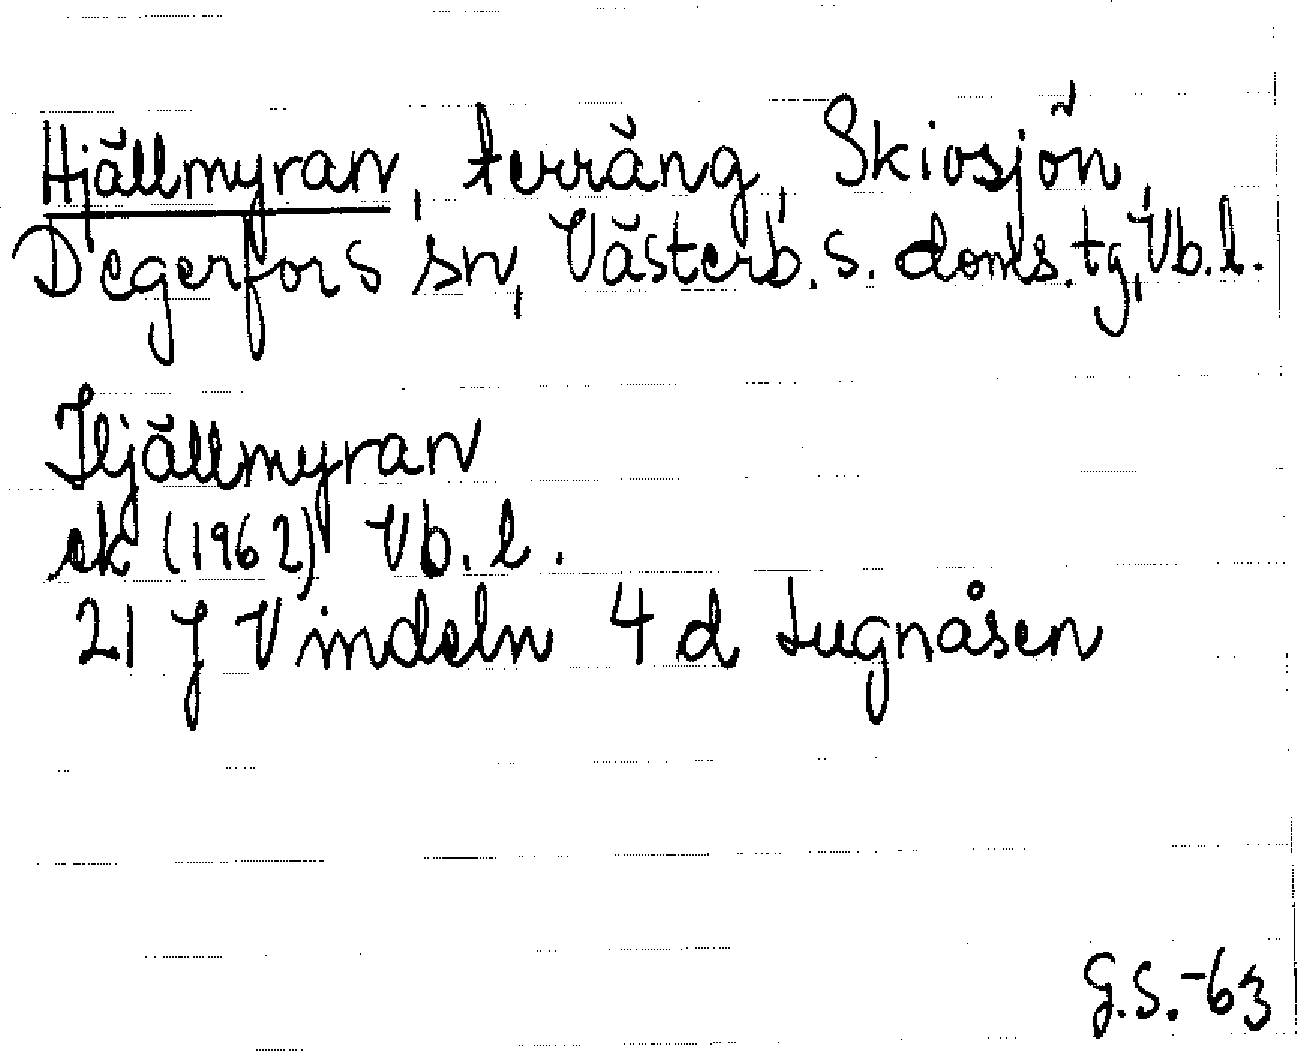 Hjällmyran, terräng, Skivsjön,
Degerfors sn, Västerb. s. doms.tg, Vb. l.
Hjällmyran
ek (1962) Vb. l.
21 J Vindeln 4 d Lugnåsen
G.S.-63